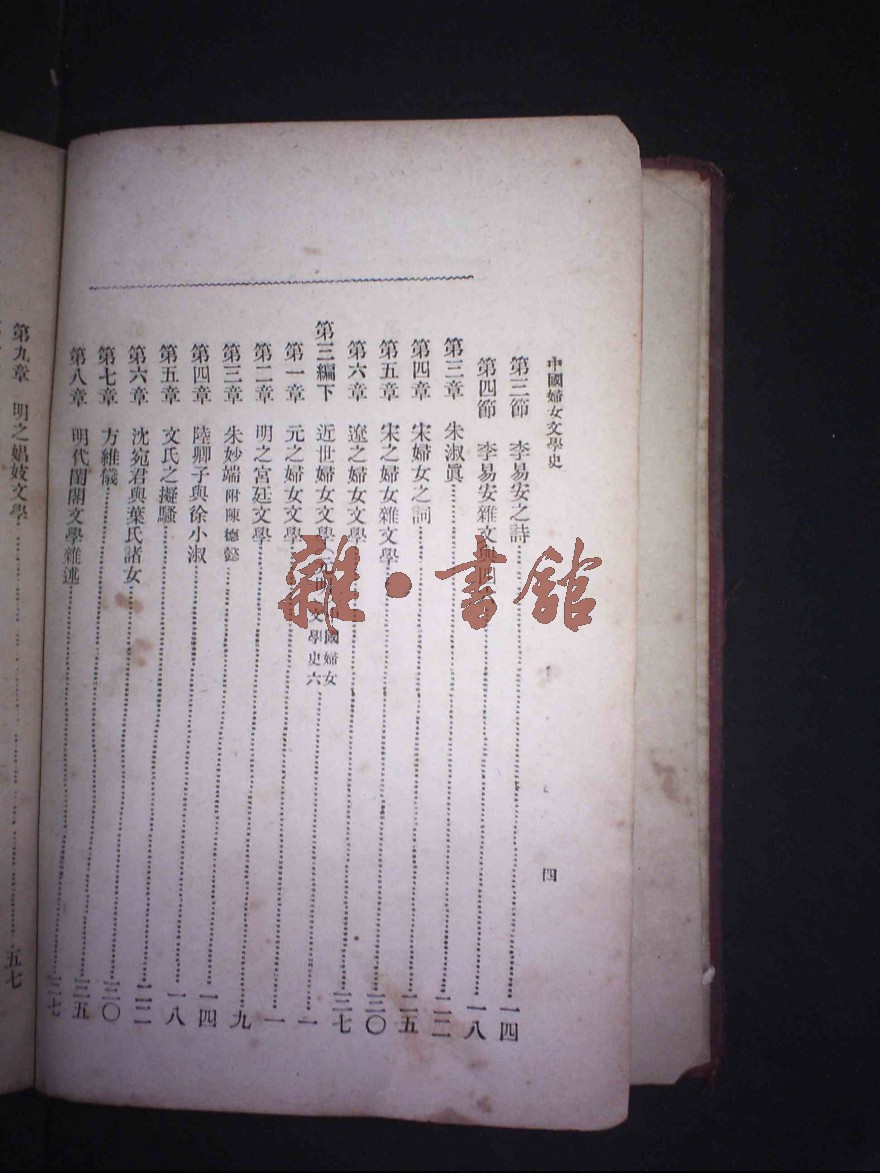 中國婦女文學史 四
第三節 李易安之詩 一四
第四節 李易安雜文與四 一八
第三章 朱淑眞 二二
第四章 宋婦女之詞 二五
第五章 宋之婦女雜文學 三〇
第六章 遼之婦女文學 三七
第三編下 近世婦女文學(元明 國婦女文學史六 一
第一章 元之婦女文學 一
第二章 明之宮廷文學 九
第三章 朱妙端附陳德懿 一四
第四章 陸卿子與徐小淑 一八
第五章 文氏之擬騷 二二
第六章 沈宛君與葉氏諸女 三〇
第七章 方維儀 三五
第八章 明代閨閣文學雜述 三七
第九章 明之娼妓文學 五七
雜·書館